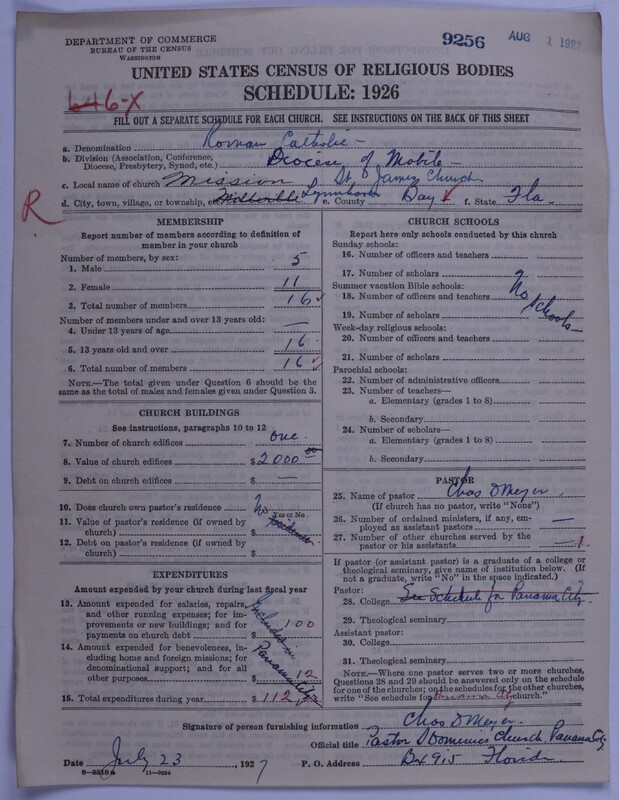 DEPARTMENT OF COMMERCE
BUREAU OF THE CENSUS
WASHINGTON
9256 AUG 1 1927
UNITED STATES CENSUS OF RELIGIOUS BODIES
SCHEDULE: 1926
646-X
FILL OUT A SEPARATE SCHEDULE FOR EACH CHURCH. SEE INSTRUCTIONS ON THE BACK OF THIS SHEET
a. Denomination Roman Catholic
b. Division (Association, Conference, Diocese, Presbytery, Synod, etc.) Diocese of Mobile
c. Local name of church Mission St. James Church
R
d. City, town, village, or township, Lynnhaven e. County Bay f. State Fla
MEMBERSHIP
Report number of members according to definition of
member in your church
Number of members, by sex:
1. Male 5
2. Female 11
3. Total number of members 16
Number of members under and over 13 years old:
4. Under 13 years of age —
5. 13 years old and over 16
6. Total number of members 16
NOTE.—The total given under Question 6 should be
same as the total of males and females given under Question 3.
CHURCH BUILDINGS
See instructions, paragraphs 10 to 12
7. Number of church edifices one
8. Value of church edifices $ 2000.00
9. Debt on church edifices $ —
10. Does church own pastor's residence No
Yes or No
11. Value of pastor's residence (if owned by
church) $
12. Debt on pastor's residence (if owned by
church) $
EXPENDITURES
Amount expended by your church during last fiscal year
13. Amount expended for salaries, repairs,
and other running expenses; for im-
provements or new buildings; and for
payments on church debt $ 100
14. Amount expended for benevolences, in-
cluding home and foreign missions; for
denominational support; and for all
other purposes 12
Included in Panama City
15. Total expenditures during year $ 112
CHURCH SCHOOLS
Report here only schools conducted by this church
Sunday schools:
16. Number of officers and teachers
17. Number of scholars
Summer vacation Bible schools:
18. Number of officers and teachers
19. Number of scholars
No schools
Week-day religious schools:
20. Number of officers and teachers
21. Number of scholars
Parochial schools:
22. Number of administrative officers
23. Number of teachers—
a. Elementary (grades 1 to 8)
b. Secondary
24. Number of scholars—
a. Elementary (grades 1 to 8)
b. Secondary
PASTOR
25. Name of pastor Chas D Meyer
(If church has no pastor, write "None")
26. Number of ordained ministers, if any, em-
ployed as assistant pastors —
27. Number of other churches served by the
pastor or his assistants 1
If pastor (or assistant pastor) is a graduate of a college or
theological seminary, give name of institution below. (If
not a graduate, write "No" in the space indicated.)
Pastor:
28. College See Schedule for Panama City
29. Theological seminary
Assistant pastor:
30. College
31. Theological seminary
NOTE.—Where one pastor serves two or more churches,
Questions 28 and 29 should be answered only on the schedule
for one of the churches; on the schedules for the other churches,
write "See schedule for Panama City church."
Signature of person furnishing information Chas D Meyer.
Official title Pastor S Dominics Church Panama City
Date July 23, 1927 P. O. Address Bx 915 Florida
8—5518a 11—9054